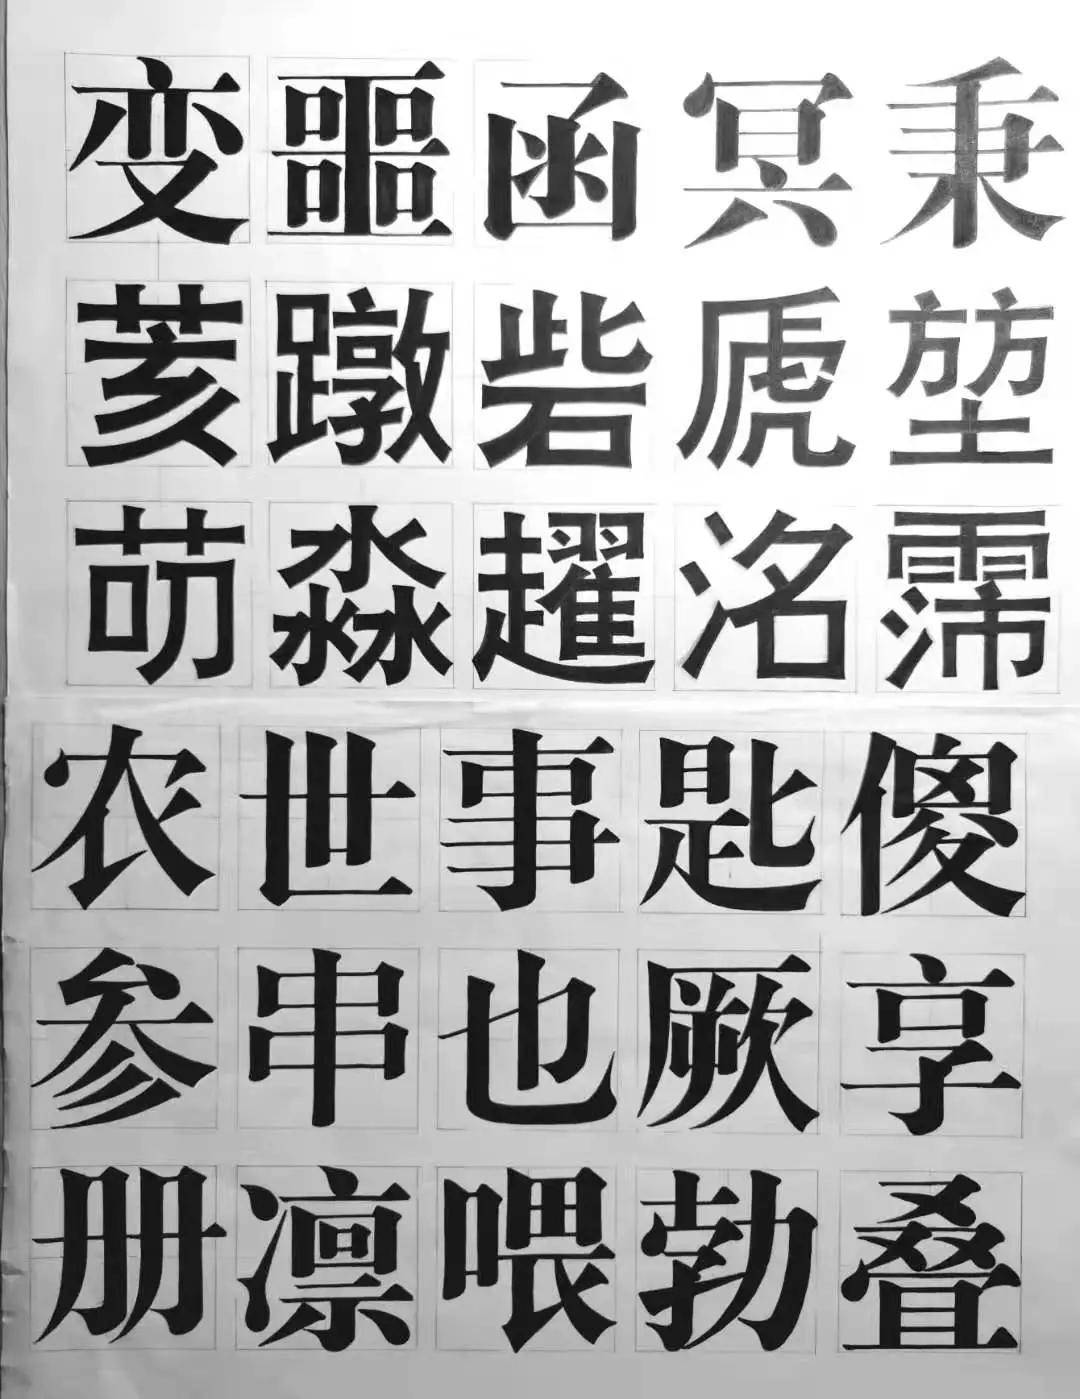 变噩函冥秉
荄蹾砦虒堃
淼趯洺霈
农世事匙傻
参串也厥享
册凛喂勃叠